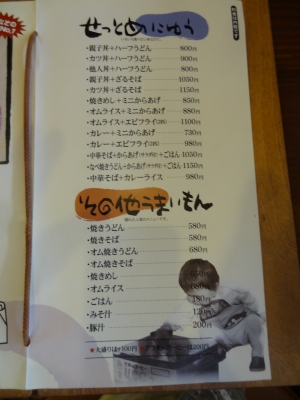 せっとめにゅう
・親子丼＋ハーフうどん 800円
・カツ丼＋ハーフうどん 900円
・他人丼＋ハーフうどん 800円
・親子丼＋ざるそば 1050円
・カツ丼＋ざるそば 1150円
・焼きめし＋ミニからあげ 850円
・オムライス＋ミニからあげ 880円
・オムライス＋エビフライ(2本) 1100円
・カレー＋ミニからあげ 730円
・カレー＋エビフライ(2本) 980円
・中華そば＋からあげ(サラダ付)＋ごはん 1050円
・なべ焼きうどん＋からあげ(サラダ付)＋ごはん 1150円
・中華そば＋カレーライス 980円
その他うまいもん
・焼きうどん 580円
・焼きそば 580円
・オム焼きうどん 680円
・オム焼きそば
・焼きめし 650円
・オムライス
・ごはん 180円
・みそ汁 120円
・豚汁 200円
★大盛りは＋100円